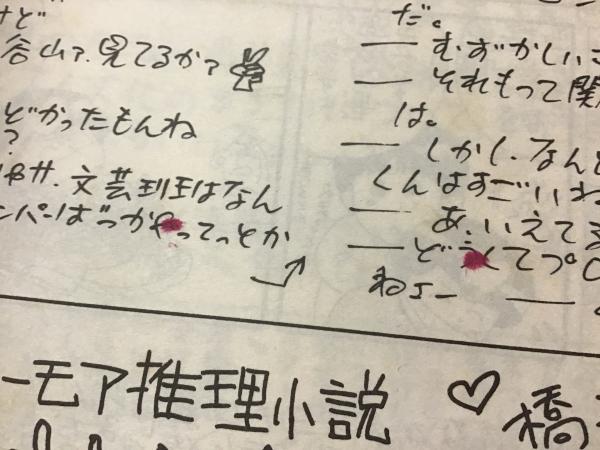 けど
谷山?見てるか?
どかったもんね
?
文芸班はなん
ンパーばっかやってっとか
だ。
― むずかしいこ
― それもって関
は。
― しかし、なんと
くんはすごいね
― あ、いえてる
― ど
くてつ
ねェー ―
ーモア推理小説 ♡ 橋